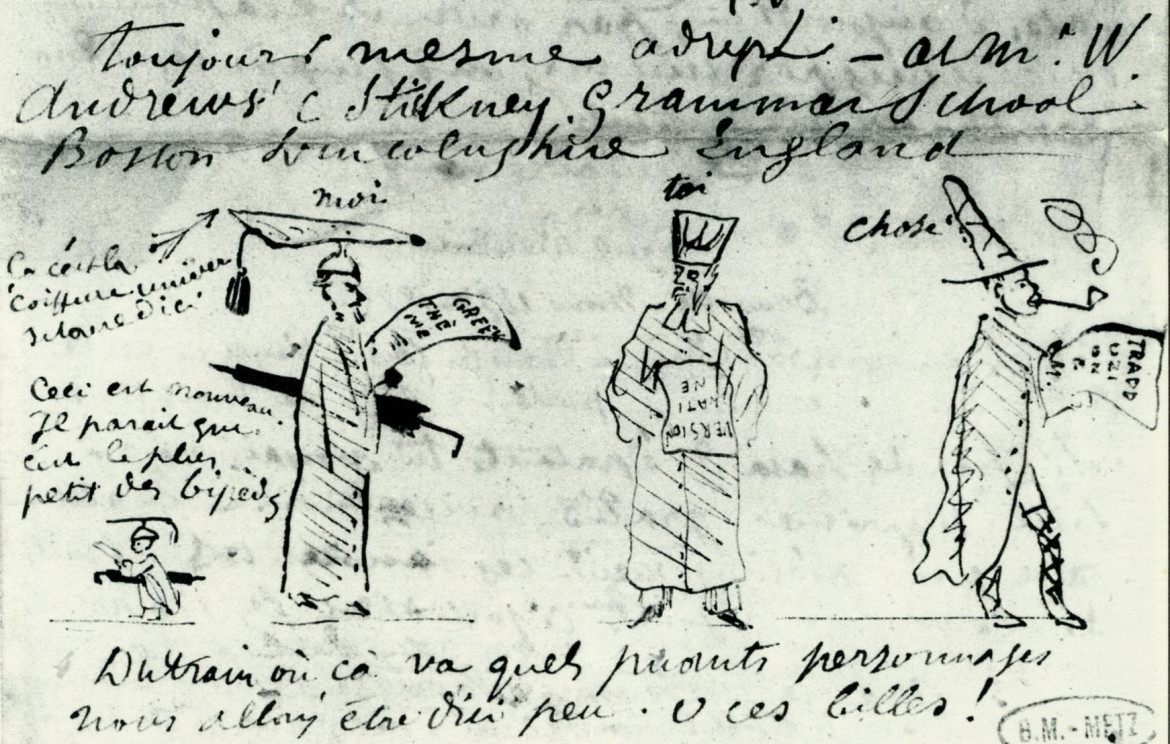 toujours mesme adresse. - at Mr. W.
Andrews' Stickney Grammar School
Boston Lincolnshire England
moi
toi
chose
Ça c'est la
coiffure univer
sitaire d'ici
GREEK
THE
ME
Ceci est nouveau.
Il parait que
c'est le plus
petit des bipeds
VERSION
LATI
NE
TRADD
UZI
ON
E
Du train où ça va quels puants personnages
nous allons être d'ici peu. O ces billes!
B.M. - METZ